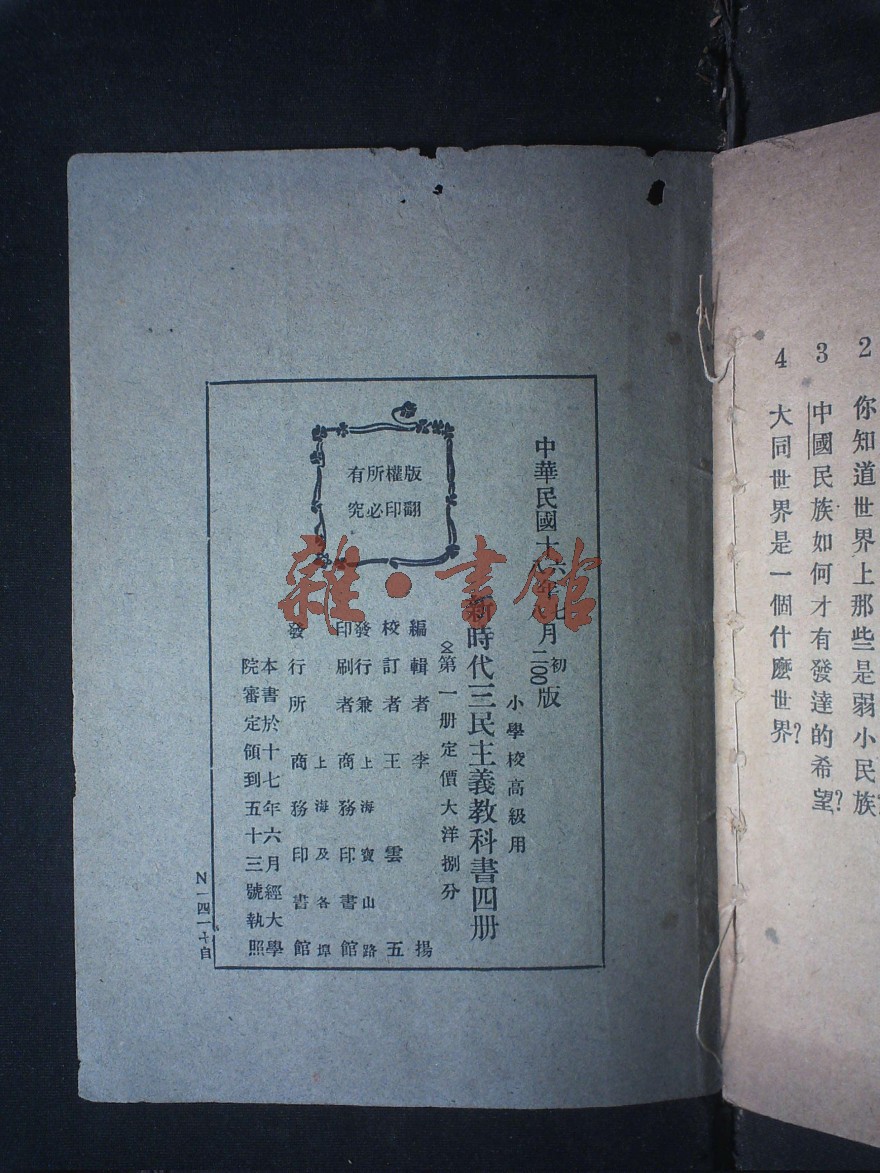 2 你知道世界上那些是弱小民族
3 中國民族如何才有發達的希望?
4 大同世界是一個什麽世界?
小學校高級用
新時代三民主義教科書四册
第一册定價大洋捌分
版權所有
翻印必究
編輯者 李揚
校訂者 王雲五
發行兼印刷者 上海寶山路 商務印書館
發行所 上海及各埠 商務印書館
本書於十七年六月經大學
院審定領到五十三號執照
N一四一十自
雜·書館